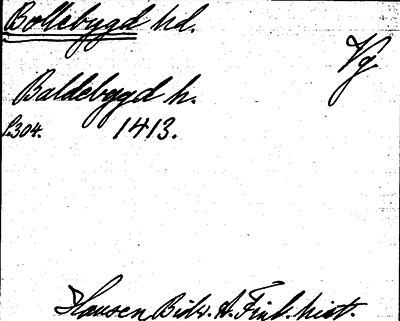 Bollebygd hd.
Vg
Baldebygd h.
S. 304. 1413.
Hausen Bidr. t. Finl. hist.